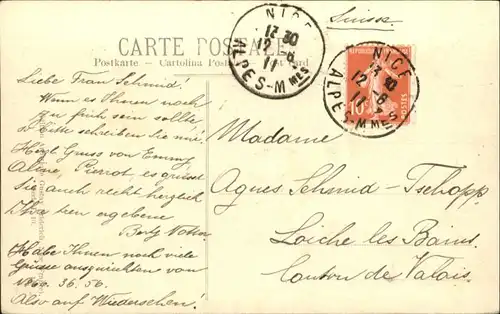 Suisse
CARTE POSTALE
Postkarte - Cartolina Post
NICE
13 30
12 - 6
11
ALPES-MMES
NICE
13 30
12 - 6
11
ALPES-MMES
10
POSTES
Liebe Frau Schmid!
Wenn es Ihnen noch
zu früh sein sollte
so bitte schreiben Sie mir.
Herzl Gruss von Emmy
Aline, Pierrot, es grüsst
Sie auch recht herzlich
Ihre treu ergebene
Berty
Habe Ihnen noch viele
Grüsse auszurichten von
36. 56.
Also auf Wiedersehen!
Madame
Agnes Schmid-Tschopp
Loiche les Bains
Canton de Valais.